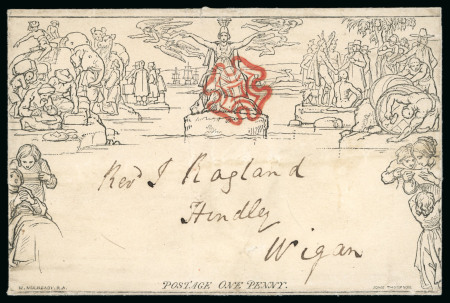 Rev J Ragland
Hindley
Wigan
W. MULREADY. R.A.
POSTAGE ONE PENNY.
JOHN THOMPSON